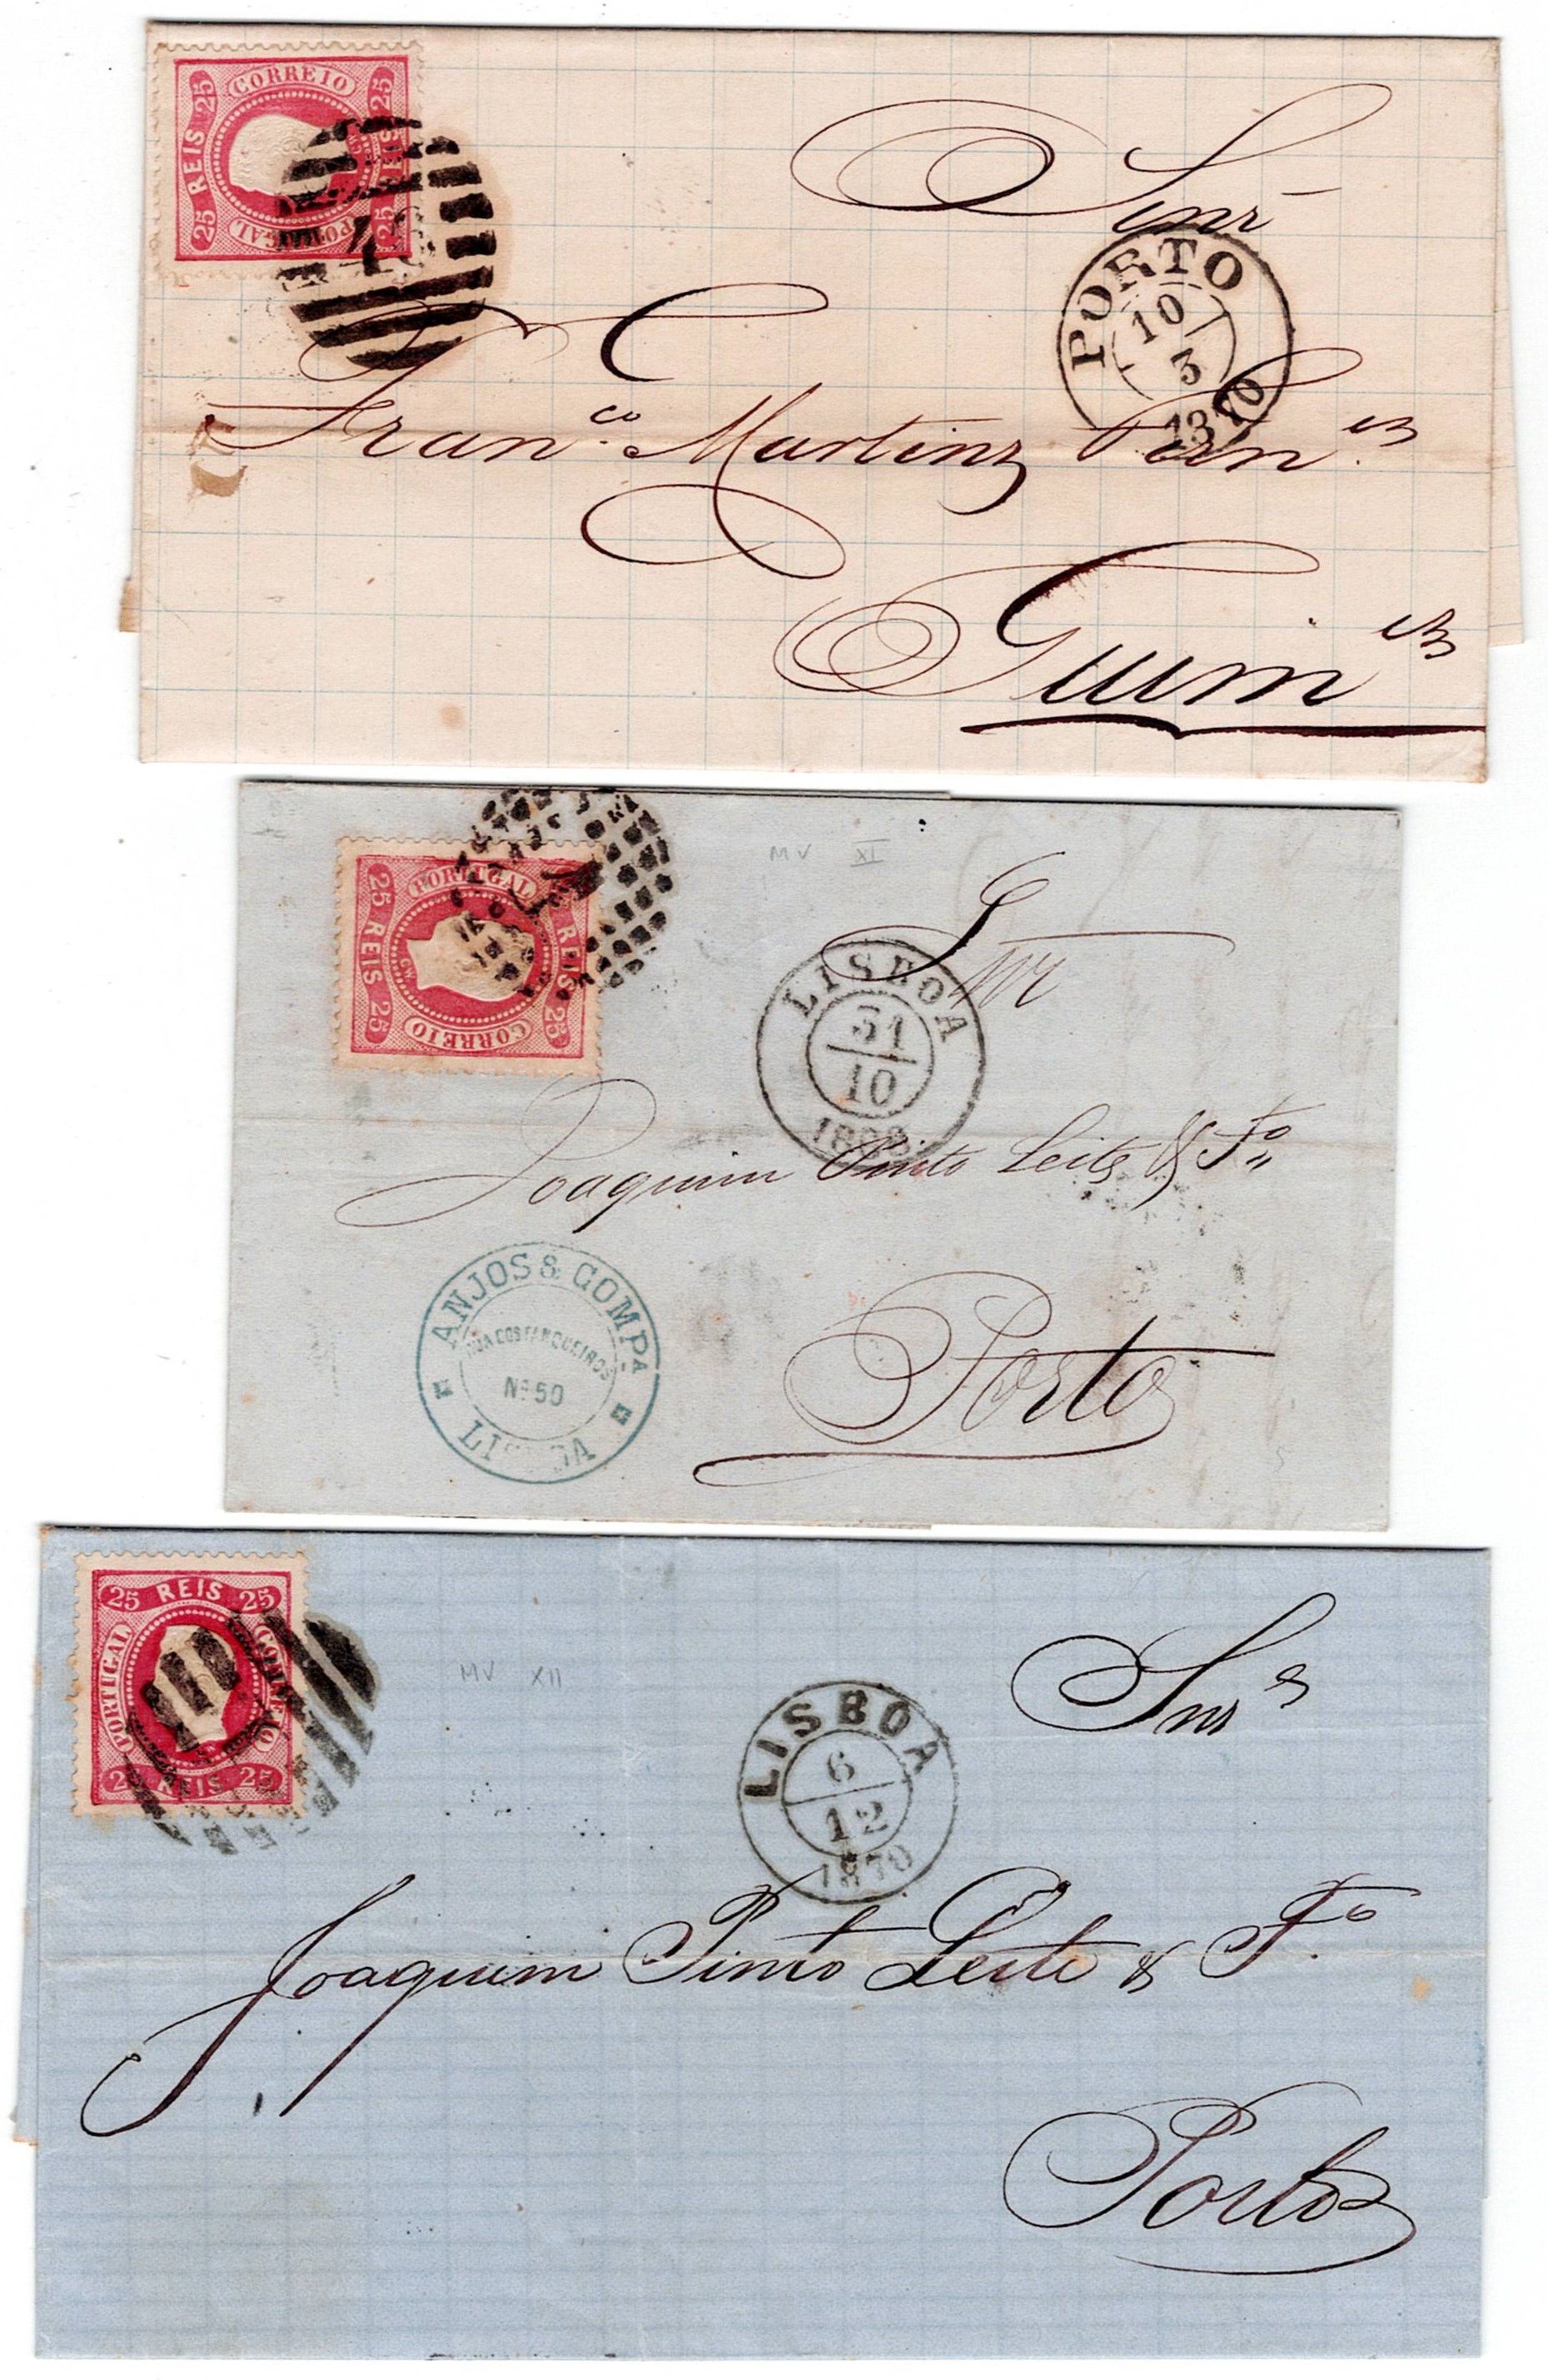 CORREIO
25 REIS 25
25 REIS 25
PORTUGAL
46
Snr
PORTO
10
3
1870
Fran.co Martinz
Guim.es
PORTUGAL
25 REIS 25
REIS 25
CW
CORREIO
1
MV XI
Snr
LISBOA
31
10
Joaquim Pinto Leite & Fo
ANJOS & COMPA
RUA DOS FANQUEIROS
No 50
LISBOA
Porto
25 REIS 25
PORTUGAL
CORREIO
25 REIS 25
1
MV XII
Snrs
LISBOA
6
12
1870
Joaquim Pinto Leite & Fo.
Porto